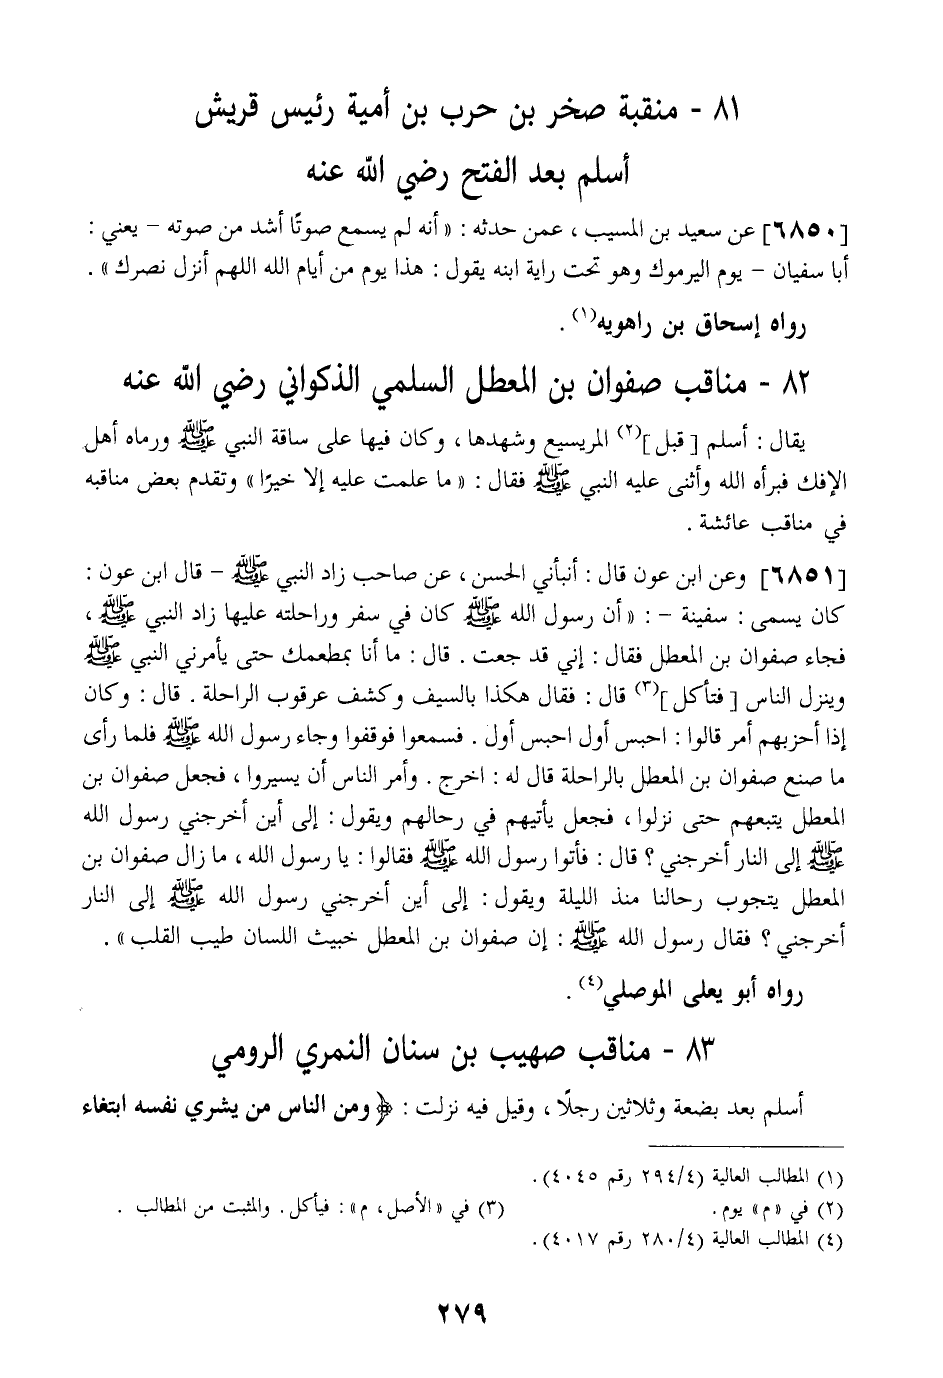 ٨١ - منقبة صخر بن حرب بن أمية رئيس قريش
أسلم بعد الفتح رضي الله عنه
[٦٨٥٠] عن سعيد بن المسيب ، عمن حدثه : « أنه لم يسمع صوتًا أشد من صوته – يعني :
أبا سفيان – يوم اليرموك وهو تحت راية ابنه يقول : هذا يوم من أيام الله اللهم أنزل نصرك » .
رواه إسحاق بن راهويه(١) .
٨٢ - مناقب صفوان بن المعطل السلمي الذكواني رضي الله عنه
يقال : أسلم [ قبل ](٢) المريسيع وشهدها ، وكان فيها على ساقة النبي ﷺ ورماه أهل
الإفك فبرأه الله وأثنى عليه النبي ﷺ فقال : « ما علمت عليه إلا خيرًا » وتقدم بعض مناقبه
في مناقب عائشة .
[٦٨٥١] وعن ابن عون قال : أنبأني الحسن ، عن صاحب زاد النبي ﷺ – قال ابن عون :
كان يسمى : سفينة – : « أن رسول الله ﷺ كان في سفر وراحلته عليها زاد النبي ﷺ ،
فجاء صفوان بن المعطل فقال : إني قد جعت . قال : ما أنا بمطعمك حتى يأمرني النبي ﷺ
وينزل الناس [ فتأكل ](٣) قال : فقال هكذا بالسيف وكشف عرقوب الراحلة . قال : وكان
إذا أحزبهم أمر قالوا : احبس أول احبس أول . فسمعوا فوقفوا وجاء رسول الله ﷺ فلما رأى
ما صنع صفوان بن المعطل بالراحلة قال له : اخرج . وأمر الناس أن يسيروا ، فجعل صفوان بن
المعطل يتبعهم حتى نزلوا ، فجعل يأتيهم في رحالهم ويقول : إلى أين أخرجني رسول الله
ﷺ إلى النار أخرجني ؟ قال : فأتوا رسول الله ﷺ فقالوا : يا رسول الله ، ما زال صفوان بن
المعطل يتجوب رحالنا منذ الليلة ويقول : إلى أين أخرجني رسول الله ﷺ إلى النار
أخرجني ؟ فقال رسول الله ﷺ : إن صفوان بن المعطل خبيث اللسان طيب القلب » .
رواه أبو يعلى الموصلي(٤) .
٨٣ - مناقب صهيب بن سنان النمري الرومي
أسلم بعد بضعة وثلاثين رجلًا ، وقيل فيه نزلت : ﴿ ومن الناس من يشري نفسه ابتغاء
(١) المطالب العالية (٢٩٤/٤ رقم ٤٠٤٥).
(٢) في «م» يوم. (٣) في «الأصل، م»: فيأكل. والمثبت من المطالب .
(٤) المطالب العالية (٢٨٠/٤ رقم ٤٠١٧).
٢٧٩